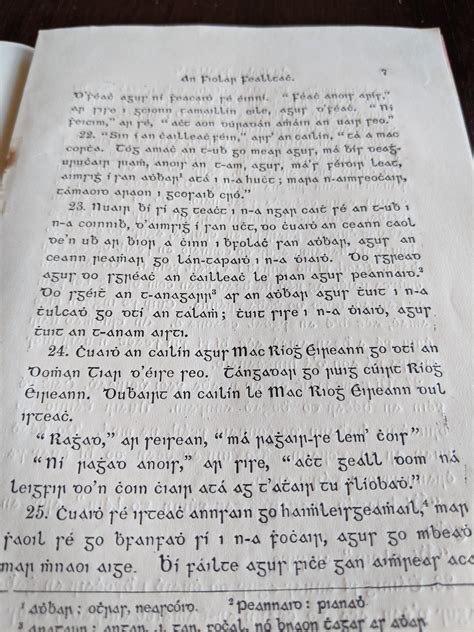 An Fiolár Fealltaċ. 7
D'féaċ agus ní feacaiḋ sé éinní. “Féaċ anois arís,”
ar sise i gcionn tamaillín eile, agus d'féaċ. “Ní
feicim,” ar sé, “aċt aon dúradán aṁáin an uair seo.”
22. “Sin í an ċailleaċ féin,” ars' an cailín, “tá a mac
Tóg amaċ an t-uḃ go mear agus, má ḃís deaġ-
uruċair riaṁ, anois an t-am, agus, má's féidir leat,
aimsiġ í san aḋḃar¹ atá i n-a huċt; mara n-aimseoċair,
támaoid araon i gcosaiḃ cró.”
23. Nuair ḃí sí ag teaċt i n-a ngar caiṫ sé an t-uḃ i
n-a coinniḃ, d'aimsiġ í san uċt, do ċuaiḋ an ceann caol
de'n uḃ ar ḃior a ċinn i ḃrolaċ san aḋḃar, agus an
ceann reaṁar go lán-tapaiḋ i n-a ḋiaiḋ. Do sgread
agus do sgréaċ an ċailleaċ le pian agus peannaid.²
Do sgéiṫ an t-anagair³ ar an aḋḃar agus ṫuit i n-a
ṫulcaḋ go dtí an talaṁ; ṫuit sise i n-a ḋiaiḋ, agus
ṫuit an t-anam aisti.
24. Ċuaiḋ an cailín agus Mac Ríoġ Éireann go dtí an
Doṁan Tiar d'éirе seo. Tángadar go ruig cúirt Ríoġ
Éireann. Duḃairt an cailín le Mac Ríoġ Éireann dul
isteaċ.
“Raġad,” ar seisean, “má raġair-se lem' ċois”
“Ní raġad anois,” ar sise, “aċt geall dom ná
leigfir do'n ċoin ċiair atá ag t'aṫair tu ṡlíobaḋ.”
25. Ċuaiḋ sé isteaċ annsain go haiṁleisgeaṁail,⁴ mar
ṡaoil sé go ḃfanfaḋ sí i n-a ḟoċair, agus go mbeaḋ
mar ṁnaoi aige. Ḃí fáilte agus fiċe gan aiṁreas
¹ aḋḃar: oṫras, neascóid. ² Peannaid: pianaḋ.